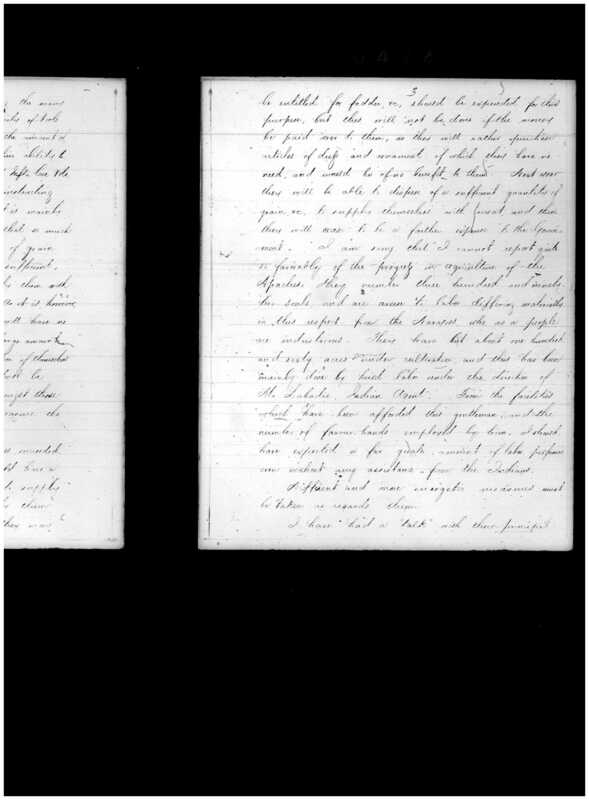 3
be entitled for fodder, &c, should be expended for this
purpose, but this will not be done if the money
be paid over to them, as they will rather purchase
articles of dress and ornament of which they have no
need, and would be of no benefit to them. Next year
they will be able to dispose of a sufficient quantity of
grain, &c, to supply themselves with meat and then
they will cease to be a further expense to the Govern-
ment. I am sorry that I cannot report quite
so favorably of the progress in agriculture of the
Apaches. They number three hundred and ninety
two souls and are averse to labor differing materially
in this respect from the Navajoes, who as a people
are industrious. They have but about one hundred
and sixty acres under cultivation and this has been
mainly done by hired labor under the direction of
Mr. Labadie, Indian Agent. From the facilities
which have been afforded this gentleman, and the
number of farmer hands employed by him, I should
have expected a far greater amount of labor performed
even without any assistance from the Indians.
Different and more energetic measures must
be taken as regards them.
I have had a "talk" with their principal
the money
the amount of
of grain
sufficient,
with
as it is
will have no
be
those
the
needed
have a
to supply